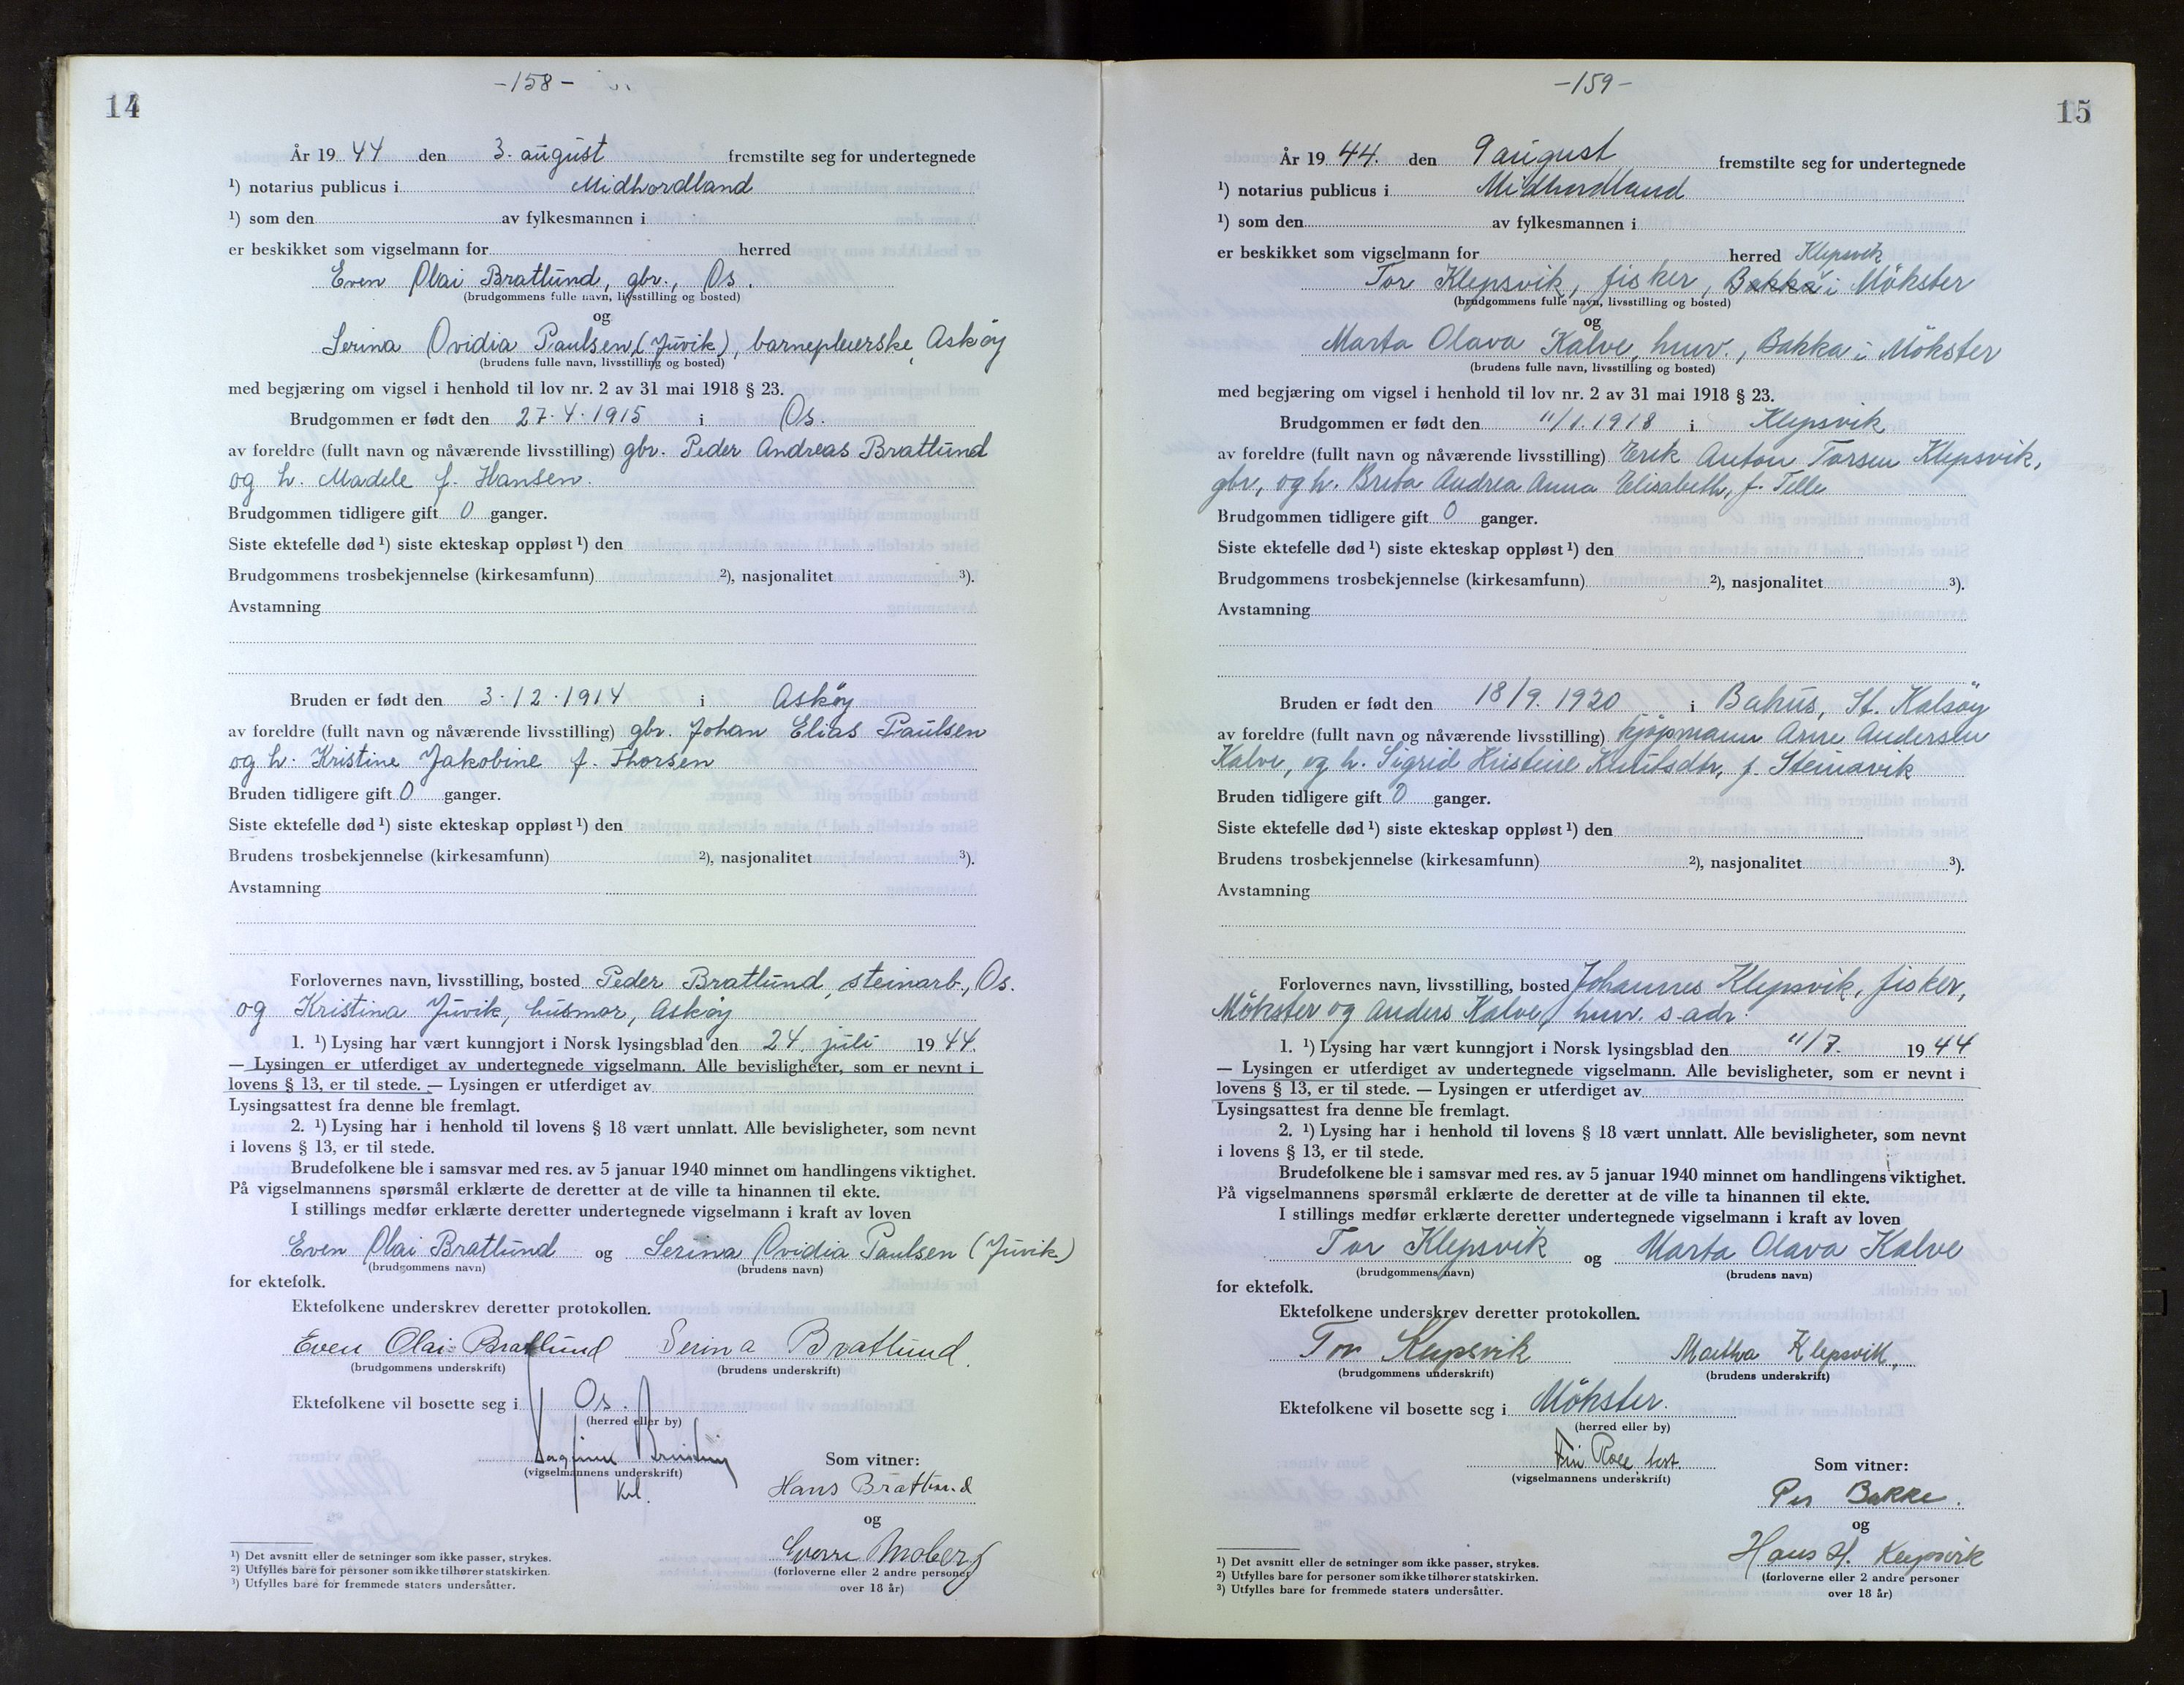 14
-158-
År 19 44 den 3. august fremstilte seg for undertegnede
¹) notarius publicus i Midhordland
¹) som den av fylkesmannen i
er beskikket som vigselmann for herred
Even Olai Bratlund, gbr., Os.
(brudgommens fulle navn, livsstilling og bosted)
og
Serina Ovidia Paulsen, (Juvik), barnepleierske, Askøy
(brudens fulle navn, livsstilling og bosted)
med begjæring om vigsel i henhold til lov nr. 2 av 31 mai 1918 § 23.
Brudgommen er født den 27.4.1915 i Os.
av foreldre (fullt navn og nåværende livsstilling) gbr. Peder Andreas Bratlund
og h. Madele f. Hansen.
Brudgommen tidligere gift 0 ganger.
Siste ektefelle død ¹) siste ekteskap oppløst ¹) den
Brudgommens trosbekjennelse (kirkesamfunn) ²), nasjonalitet ³).
Avstamning
Bruden er født den 3.12.1914 i Askøy
av foreldre (fullt navn og nåværende livsstilling) gbr. Johan Elias Paulsen
og h. Kristine Jakobine f. Thorsen
Bruden tidligere gift 0 ganger.
Siste ektefelle død ¹) siste ekteskap oppløst ¹) den
Brudens trosbekjennelse (kirkesamfunn) ²), nasjonalitet ³).
Avstamning
Forlovernes navn, livsstilling, bosted Peder Bratlund, steinarb., Os.
og Kristina Juvik, husmor, Askøy
1. ¹) Lysing har vært kunngjort i Norsk lysingsblad den 24. juli 19 44.
— Lysingen er utferdiget av undertegnede vigselmann. Alle bevisligheter, som er nevnt i
lovens § 13, er til stede. — Lysingen er utferdiget av
Lysingsattest fra denne ble fremlagt.
2. ¹) Lysing har i henhold til lovens § 18 vært unnlatt. Alle bevisligheter, som nevnt
i lovens § 13, er til stede.
Brudefolkene ble i samsvar med res. av 5 januar 1940 minnet om handlingens viktighet.
På vigselmannens spørsmål erklærte de deretter at de ville ta hinannen til ekte.
I stillings medfør erklærte deretter undertegnede vigselmann i kraft av loven
Even Olai Bratlund og Serina Ovidia Paulsen (Juvik)
(brudgommens navn) (brudens navn)
for ektefolk.
Ektefolkene underskrev deretter protokollen.
Even Olai Bratlund Serina Bratlund.
(brudgommens underskrift) (brudens underskrift)
Ektefolkene vil bosette seg i Os.
(herred eller by)
(vigselmannens underskrift)
Som vitner:
Hans Bratlund
og
Sverre Moberg
(forloverne eller 2 andre personer
over 18 år)
¹) Det avsnitt eller de setninger som ikke passer, strykes.
²) Utfylles bare for personer som ikke tilhører statskirken.
³) Utfylles bare for fremmede staters undersåtter.
15
-159-
År 19 44. den 9 august fremstilte seg for undertegnede
¹) notarius publicus i Midhordland
¹) som den av fylkesmannen i
er beskikket som vigselmann for herred Klepsvik
Tor Klepsvik, fisker, Bakka i Møkster
(brudgommens fulle navn, livsstilling og bosted)
og
Marta Olava Kalve, husv., Bakka i Møkster
(brudens fulle navn, livsstilling og bosted)
med begjæring om vigsel i henhold til lov nr. 2 av 31 mai 1918 § 23.
Brudgommen er født den 11/1.1918 i Klepsvik
av foreldre (fullt navn og nåværende livsstilling) Erik Anton Torsen Klepsvik,
gbr, og h. Brita Andrea Anna Elisabeth, f. Telle
Brudgommen tidligere gift 0 ganger.
Siste ektefelle død ¹) siste ekteskap oppløst ¹) den
Brudgommens trosbekjennelse (kirkesamfunn) ²), nasjonalitet ³).
Avstamning
Bruden er født den 18/9.1920 i Bakus, St. Kalsøy
av foreldre (fullt navn og nåværende livsstilling) kjøpmann Arne Andersen
Kalve, og h. Sigrid Kristine Knutsdtr, f. Steinarvik
Bruden tidligere gift 0 ganger.
Siste ektefelle død ¹) siste ekteskap oppløst ¹) den
Brudens trosbekjennelse (kirkesamfunn) ²), nasjonalitet ³).
Avstamning
Forlovernes navn, livsstilling, bosted Johannes Klepsvik, fisker,
Møkster og Anders Kalve, husv. s. adr.
1. ¹) Lysing har vært kunngjort i Norsk lysingsblad den 11/7. 19 44
— Lysingen er utferdiget av undertegnede vigselmann. Alle bevisligheter, som er nevnt i
lovens § 13, er til stede. — Lysingen er utferdiget av
Lysingsattest fra denne ble fremlagt.
2. ¹) Lysing har i henhold til lovens § 18 vært unnlatt. Alle bevisligheter, som nevnt
i lovens § 13, er til stede.
Brudefolkene ble i samsvar med res. av 5 januar 1940 minnet om handlingens viktighet.
På vigselmannens spørsmål erklærte de deretter at de ville ta hinannen til ekte.
I stillings medfør erklærte deretter undertegnede vigselmann i kraft av loven
Tor Klepsvik og Marta Olava Kalve
(brudgommens navn) (brudens navn)
for ektefolk.
Ektefolkene underskrev deretter protokollen.
Tor Klepsvik Martha Klepsvik,
(brudgommens underskrift) (brudens underskrift)
Ektefolkene vil bosette seg i Møkster.
(herred eller by)
(vigselmannens underskrift)
Som vitner:
Per Bakke.
og
Hans H. Klepsvik
(forloverne eller 2 andre personer
over 18 år)
¹) Det avsnitt eller de setninger som ikke passer, strykes.
²) Utfylles bare for personer som ikke tilhører statskirken.
³) Utfylles bare for fremmede staters undersåtter.